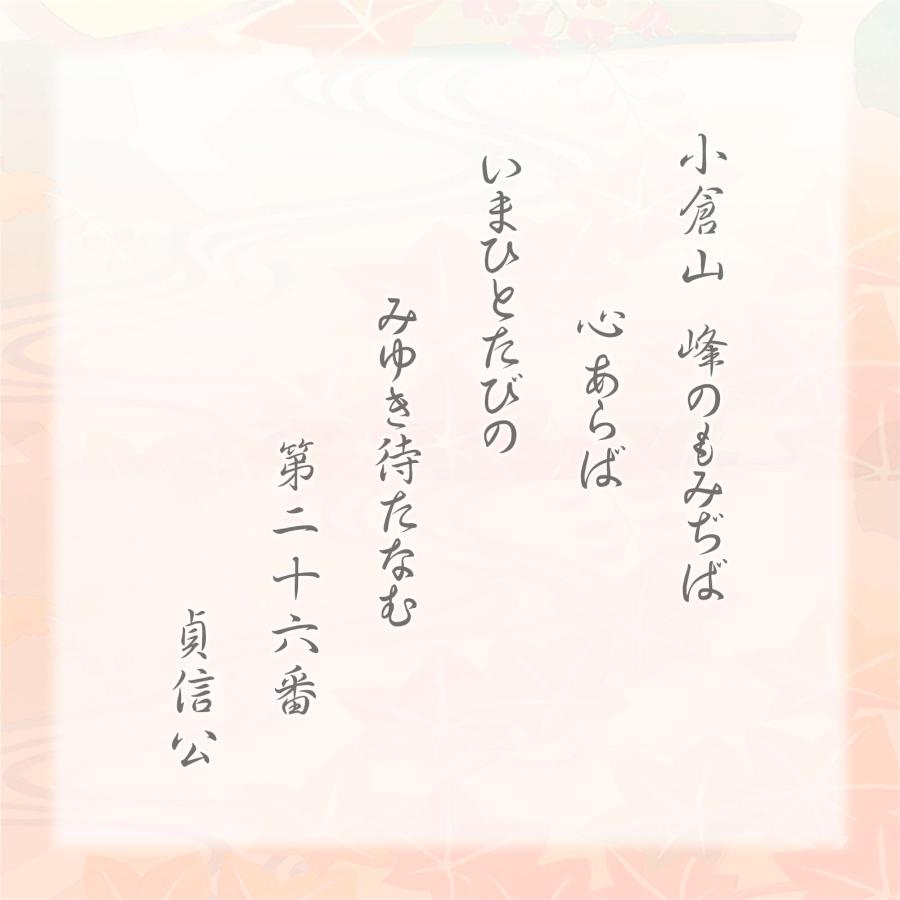 小倉山 峰のもみぢば
心あらば
いまひとたびの
みゆき待たなむ
第二十六番
貞信公